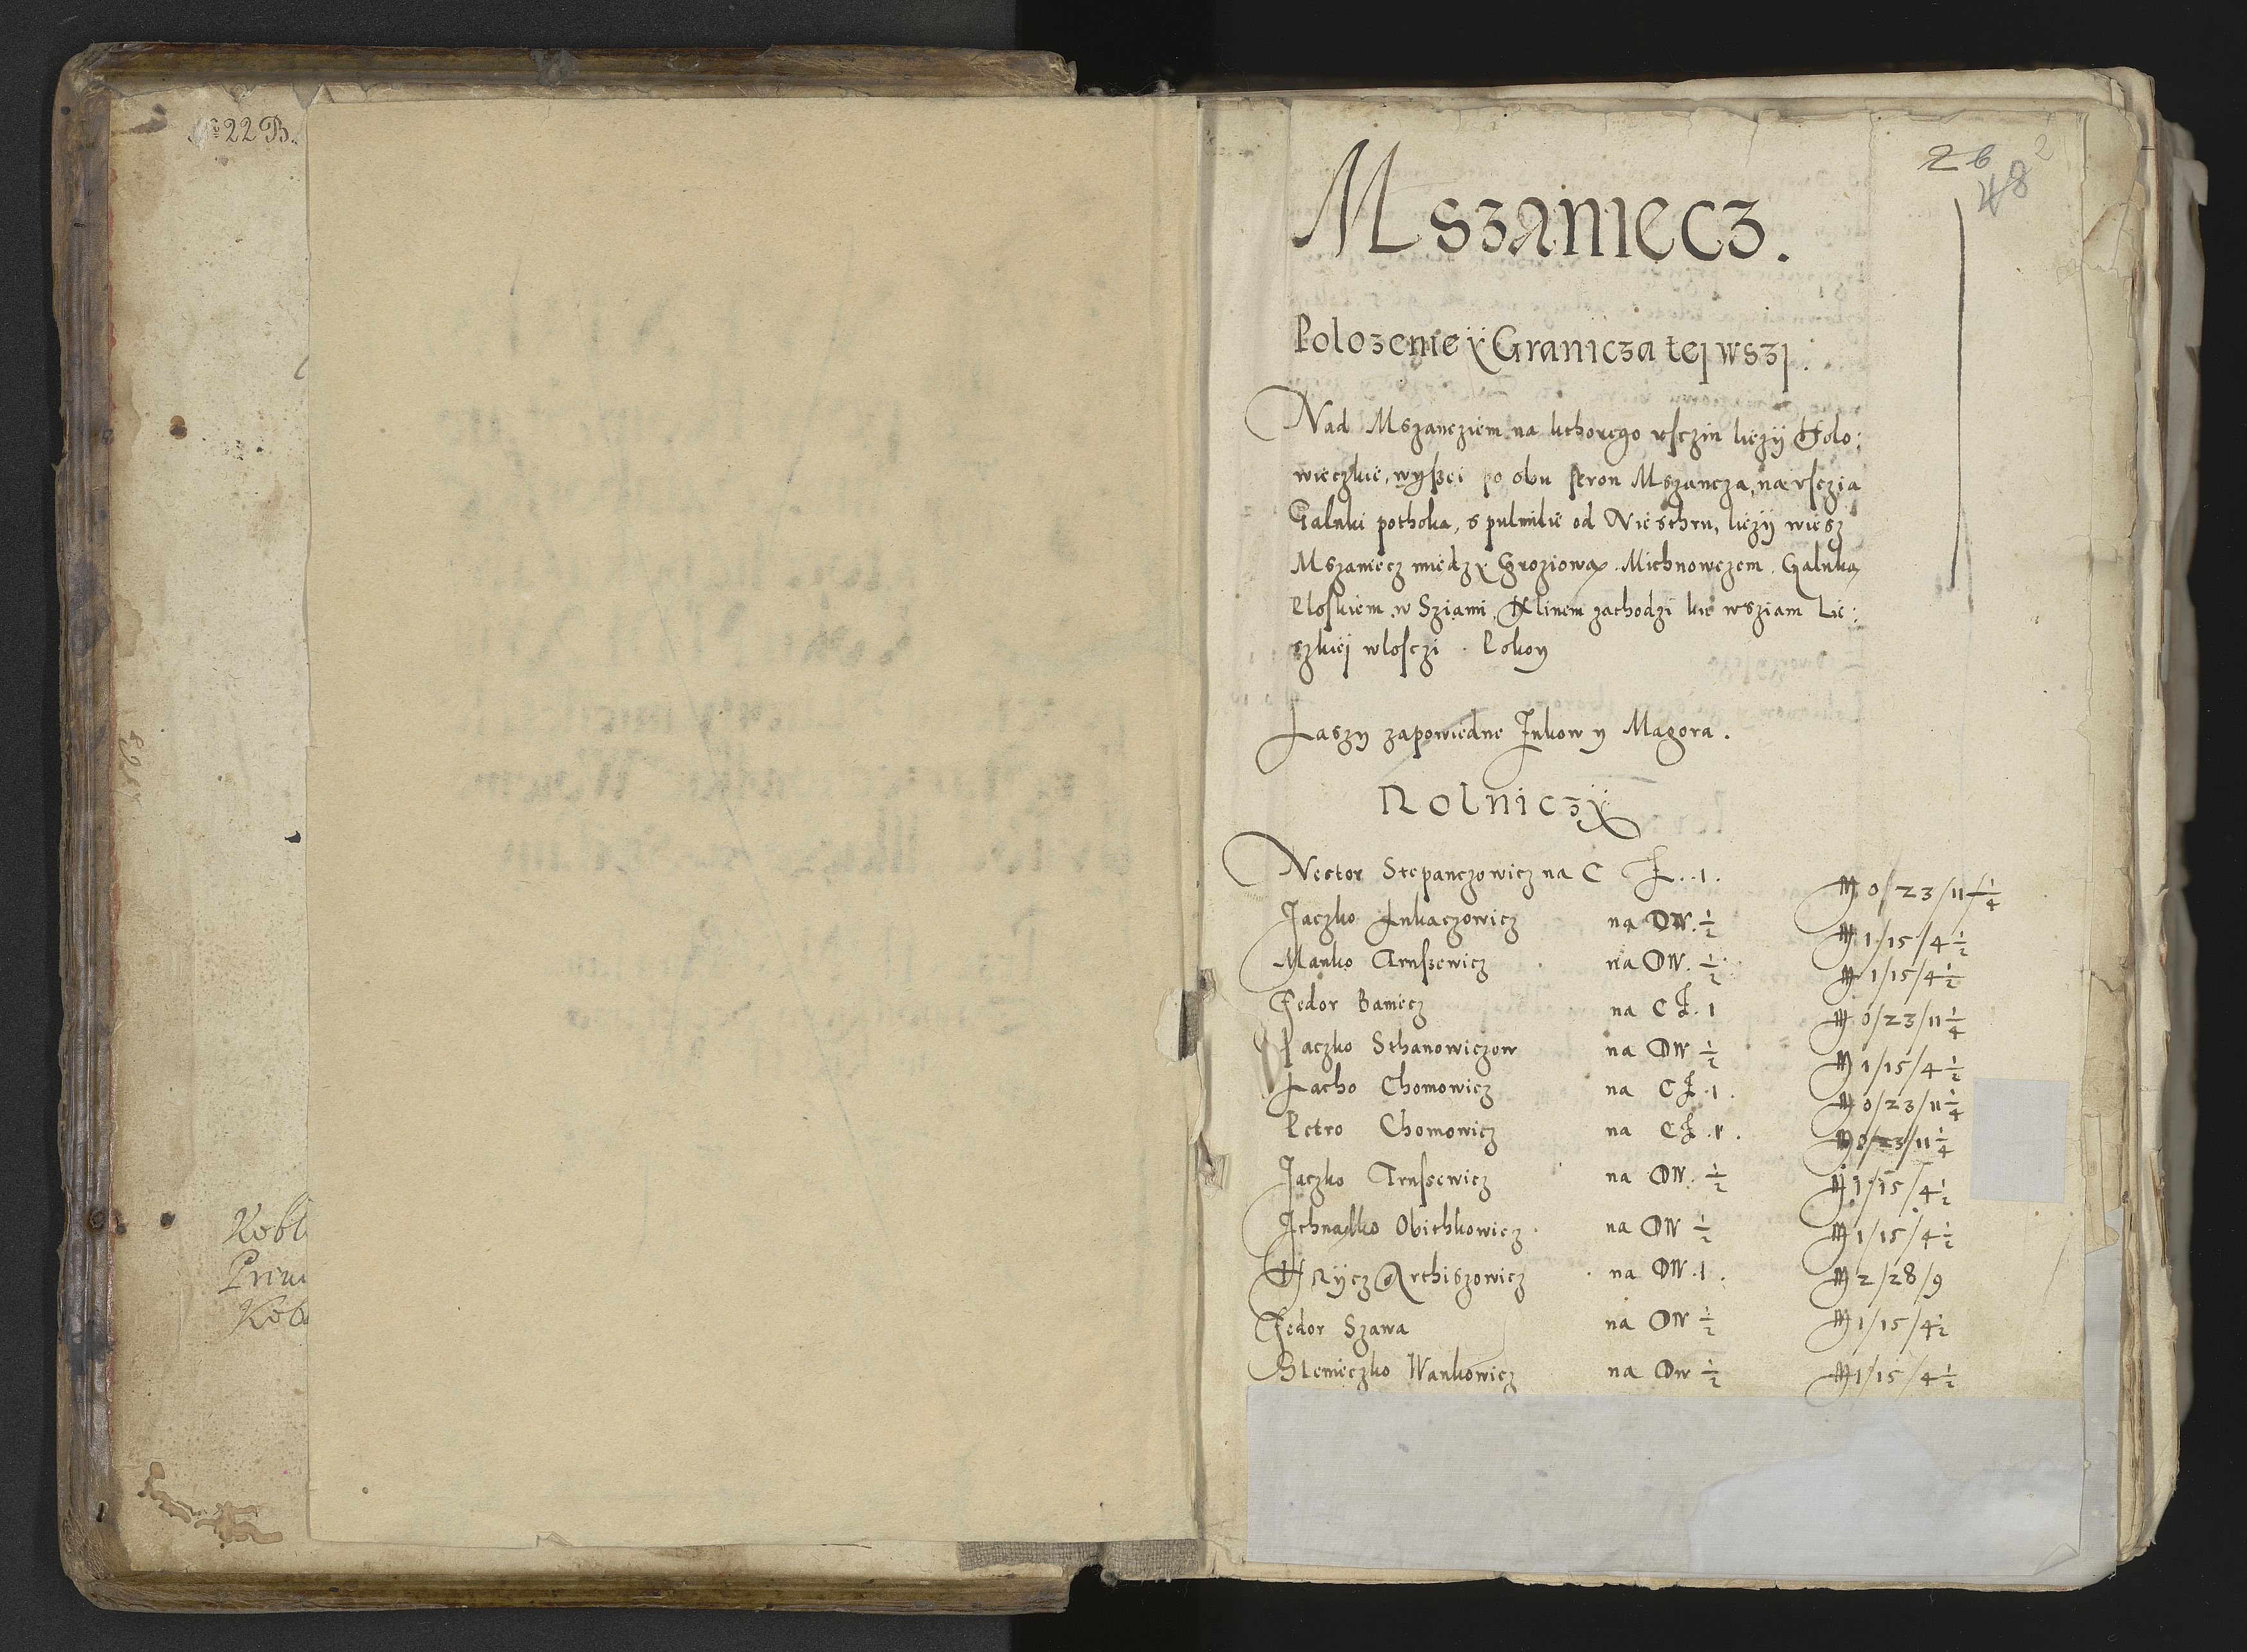 № 22 B.
Kobl
Priu
Kob
2 6 2
48
Mszaniecz.
Polozenie y Granicza tej wszj.
Nad Mszancziem na kthorego vsczin liezij Holo:
wieczkie, wyßei po obu stron Mszancza, na vsczia
Galuki pothoka, s pulmilie od Niesthru, liezij wiesz
Mszaniecz miedzy Groziową Michnowczem Galuką
Ploskiem, w Sziami, Klinem zachodzi kie wsziam Lie:
szkiej wlosczi. Pokoy
Laszy zapowiedne Jukow y Magora.
Rolniczy
Nector Stepanczowicz na C Ł. 1. M 0/23/11 1/4
Jaczko Lukaczowicz na DW. 1/2 M 1/15/4 1/2
Manko Arnßewicz na DW. 1/2 M 1/15/4 1/2
Fedor Baniecz na C Ł. 1 M 0/23/11 1/4
Paczko Sthanowiczow na DW 1/2 M 1/15/4 1/2
Lacho Chomowicz na C Ł. 1. M 0/23/11 1/4
Petro Chomowicz na C Ł. 1. M 0/23/11 1/4
Jaczko Arnßewicz na DW. 1/2 M 1/15/4 1/2
Ichnadko Obithkowicz na DW 1/2 M 1/15/4 1/2
Hrÿcz Arthiszowicz na DW. 1. M 2/28/9
Fedor Szawa na DW 1/2 M 1/15/4 1/2
Stenieczko Wankowicz na DW 1/2 M 1/15/4 1/2